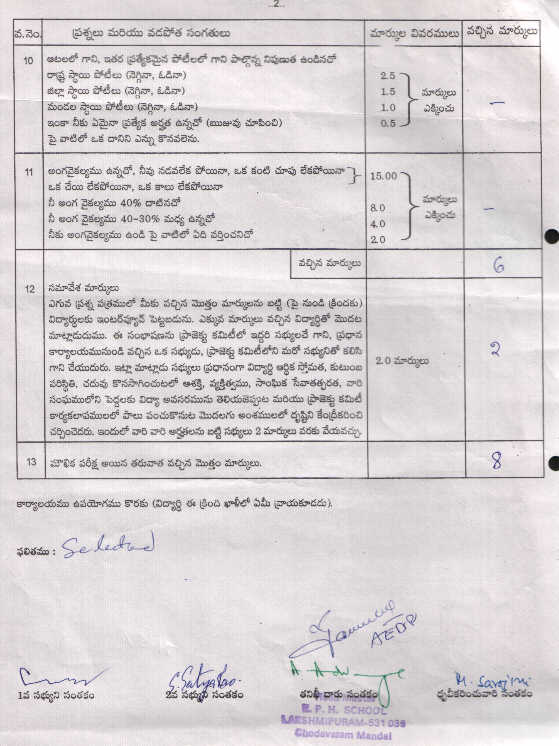 ..2..
వ.నెం. ప్రశ్నలు మరియు వడపోత సంగతులు మార్కుల వివరములు వచ్చిన మార్కులు
10 ఆటలలో గాని, ఇతర ప్రత్యేకమైన పోటీలలో గాని పాల్గొన్న నిపుణత ఉండినచో
రాష్ట్ర స్థాయి పోటీలు (నెగ్గినా, ఓడినా) 2.5
జిల్లా స్థాయి పోటీలు (నెగ్గినా, ఓడినా) 1.5 మార్కులు
మండల స్థాయి పోటీలు (నెగ్గినా, ఓడినా) 1.0 ఎక్కించు –
ఇంకా నీకు ఏమైనా ప్రత్యేక అర్హత ఉన్నచో (ఋజువు చూపించి) 0.5
పై వాటిలో ఒక దానిని ఎన్ను కొనవలెను.
11 అంగవైకల్యము ఉన్నచో, నీవు నడవలేక పోయినా, ఒక కంటి చూపు లేకపోయినా 15.00
ఒక చేయి లేకపోయినా, ఒక కాలు లేకపోయినా
నీ అంగ వైకల్యము 40% దాటినచో 8.0 మార్కులు
నీ అంగ వైకల్యము 40-30% మధ్య ఉన్నచో 4.0 ఎక్కించు –
నీకు అంగవైకల్యము ఉండి పై వాటిలో ఏది వర్తించనిచో 2.0
వచ్చిన మార్కులు 6
12 సమావేశ మార్కులు
ఎగువ ప్రశ్న పత్రములో మీకు వచ్చిన మొత్తం మార్కులను బట్టి (పై నుండి క్రిందకు)
విద్యార్థులకు ఇంటర్వ్యూన్ పెట్టబడును. ఎక్కువ మార్కులు వచ్చిన విద్యార్థితో మొదట
మాట్లాడుదుము. ఈ సంభాషణను ప్రాజెక్టు కమిటీలో ఇద్దరి సభ్యులచే గాని, ప్రధాన
కార్యాలయమునుండి వచ్చిన ఒక సభ్యుడు, ప్రాజెక్టు కమిటీలోని మరో సభ్యునితో కలిసి
గాని చేయుదురు. ఇట్లా మాట్లాడు సభ్యులు ప్రధానంగా విద్యార్థి ఆర్థిక స్తోమత, కుటుంబ 2.0 మార్కులు 2
పరిస్థితి, చదువు కొనసాగించుటలో ఆశక్తి, వ్యక్తిత్వము, సాంఘిక సేవాతత్పరత, వారి
సంఘములోని పెద్దలకు విద్యా అవసరమును తెలియజెప్పుట మరియు ప్రాజెక్టు కమిటీ
కార్యకలాపములలో పాలు పంచుకొనుట మొదలగు అంశములలో దృష్టిని కేంద్రీకరించి
చర్చించెదరు. ఇందులో వారి వారి అర్హతలను బట్టి సభ్యులు 2 మార్కులు వరకు వేయవచ్చు.
13 మౌఖిక పరీక్ష అయిన తరువాత వచ్చిన మొత్తం మార్కులు. 8
కార్యాలయము ఉపయోగము కొరకు (విద్యార్థి ఈ క్రింది ఖాళీలో ఏమీ వ్రాయకూడదు).
ఫలితము : Selected
AEDP
S. Satya Rao. M. Sarojini
1వ సభ్యుని సంతకం 2వ సభ్యుని సంతకం తనిఖీ దారు సంతకం ధృవీకరించువారి సంతకం
P. H. SCHOOL
LAKSHMIPURAM-531 036
Chodavaram Mandal